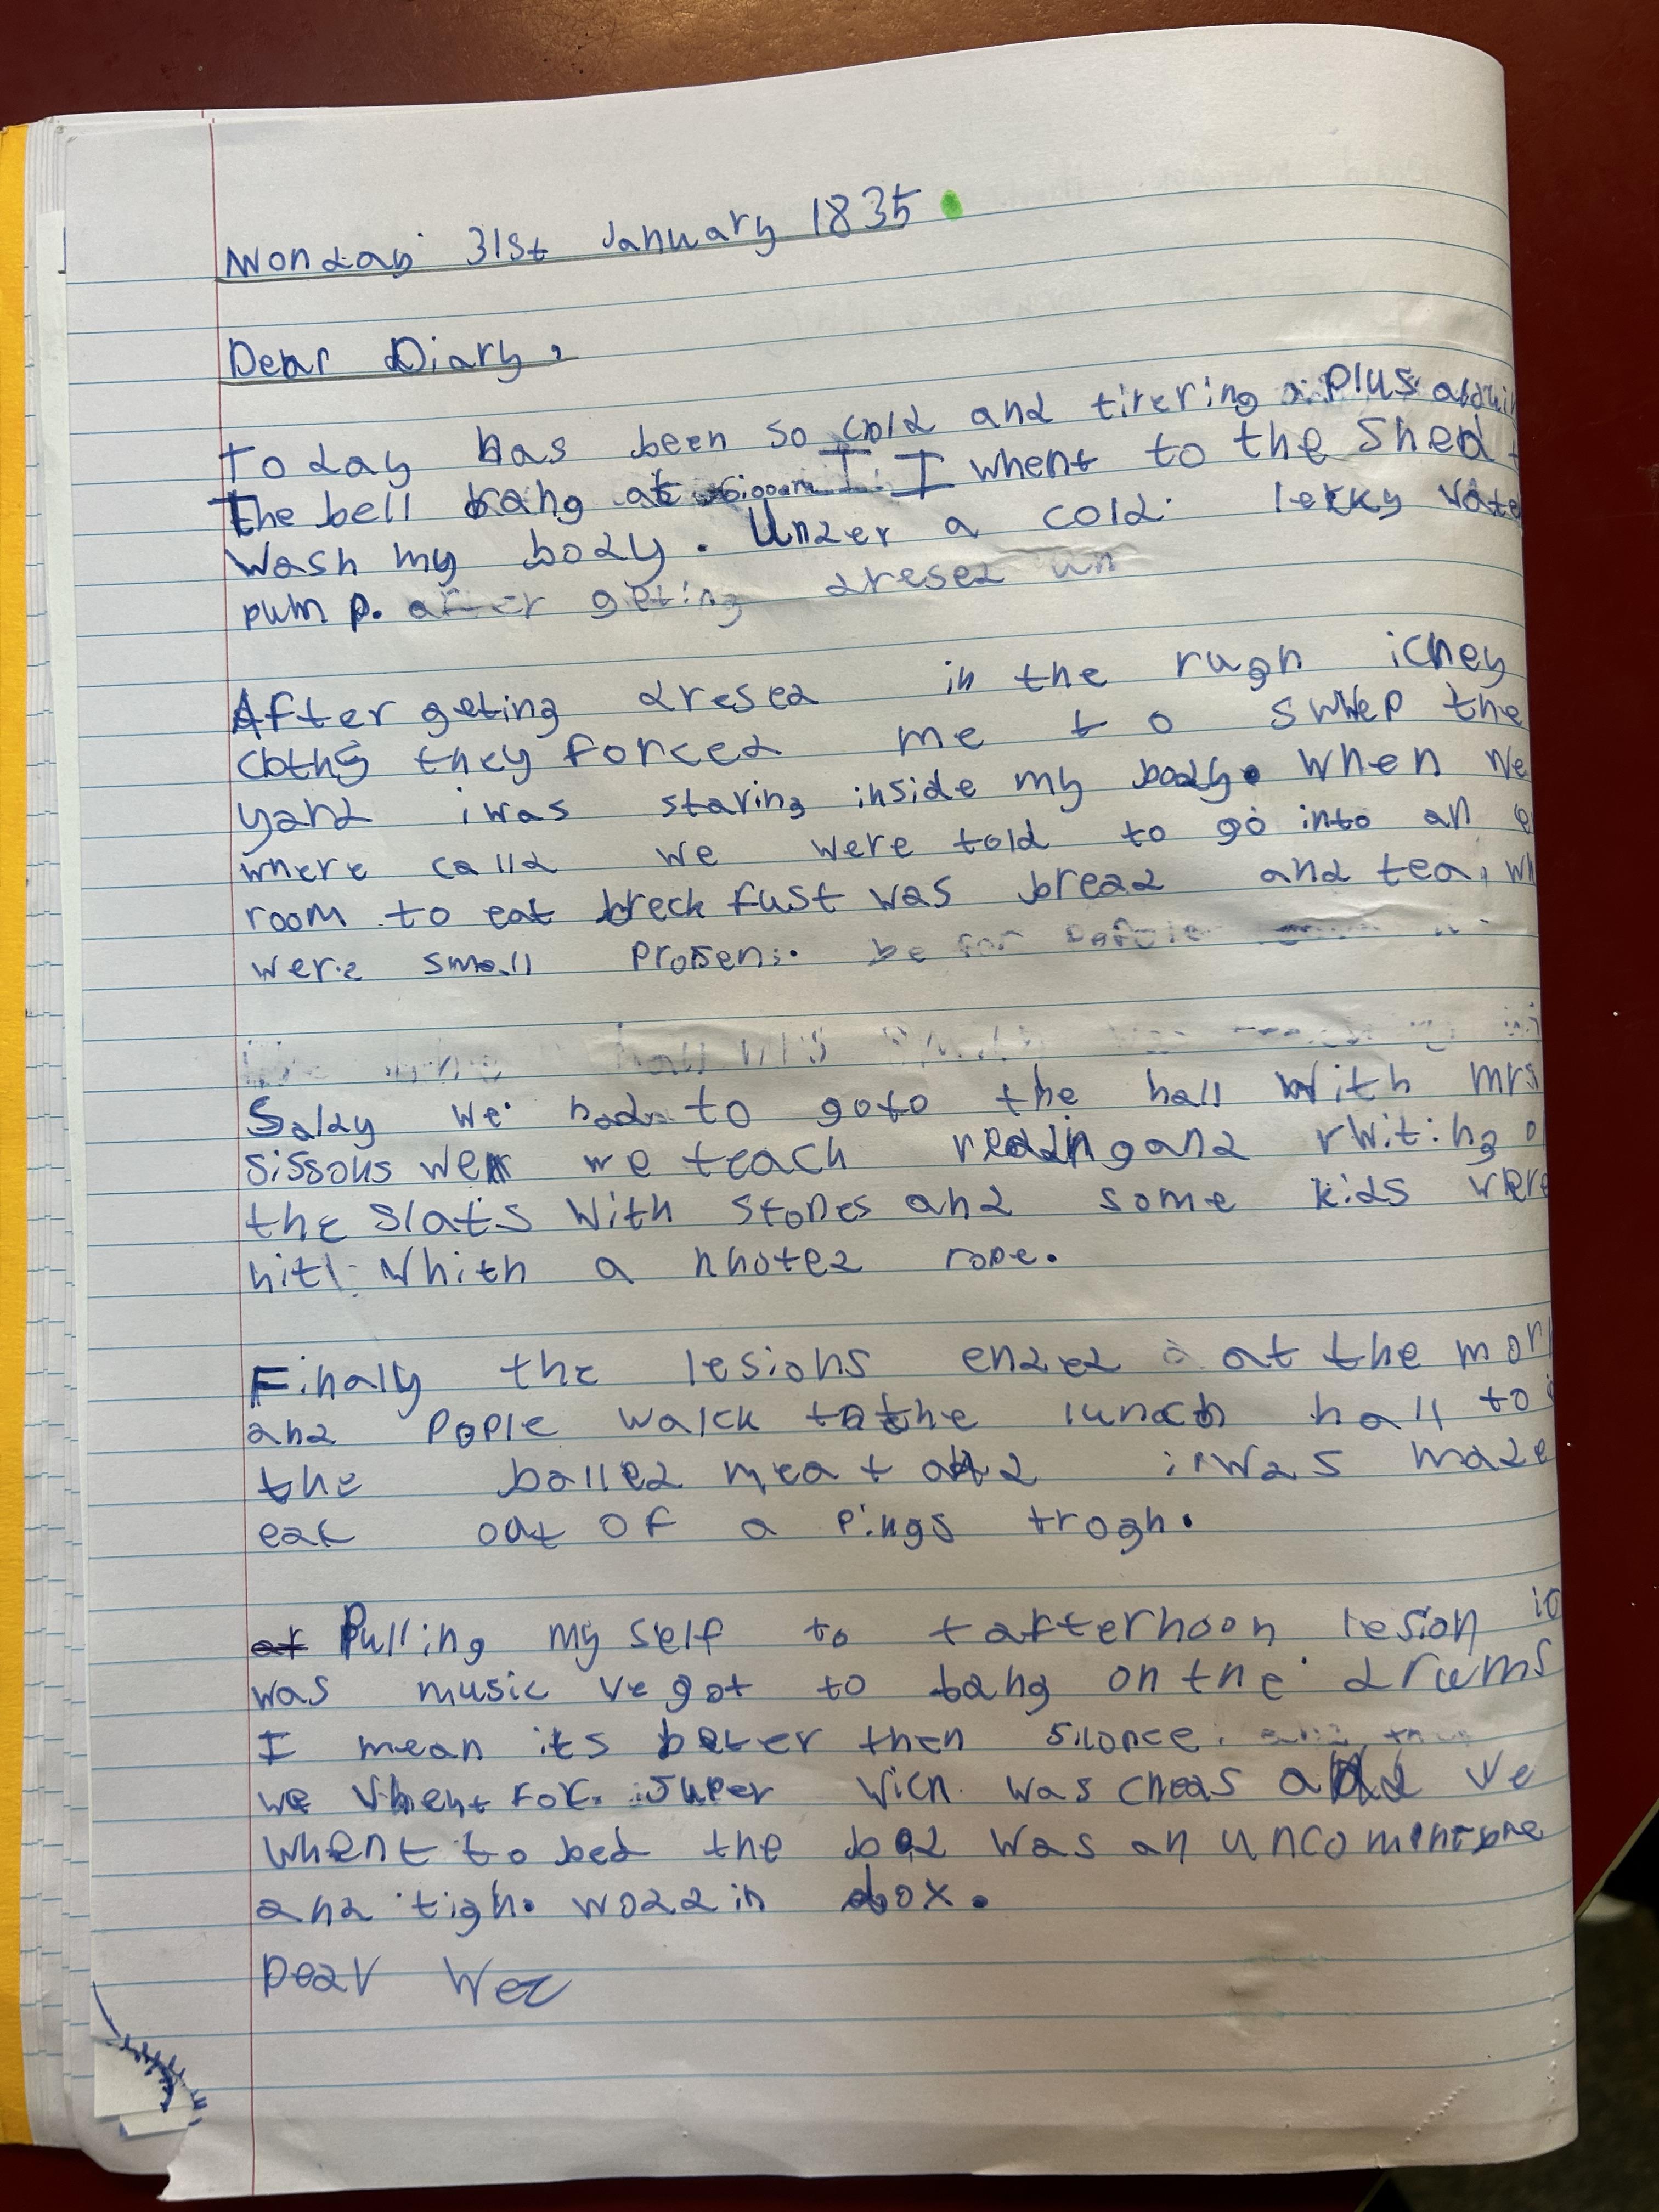 Monday 31st January 1835
Dear Diary,
Today has been so cold and tirering Plus
The bell rang at I whent to the Shed
Wash my body. Under a cold lekky
pump. after geting dresed un
After geting dresed in the rugh ichey
cloths they forced me to swwep the
yard i was staring inside my body. When we
where calld we were told to go into an
room to eat breckfust was bread and tea,
were small
Saldy we had to go to the hall With mrs
sissons wer we teach reading and rwiting
the slats with stones and some kids were
hit Whith a khoted rope.
Finaly the lesions ended at the
and Pople walck to the lunch hall to
the balled meat and i was made
eat out of a Pings trogh.
Pulling my self to tafternoon lesion
was music ve got to bang on the drums
I mean its beter then silonce.
we Vhent for super Vich was cheas and Ve
whent to bed the bed was an
and tigh. woddin box.